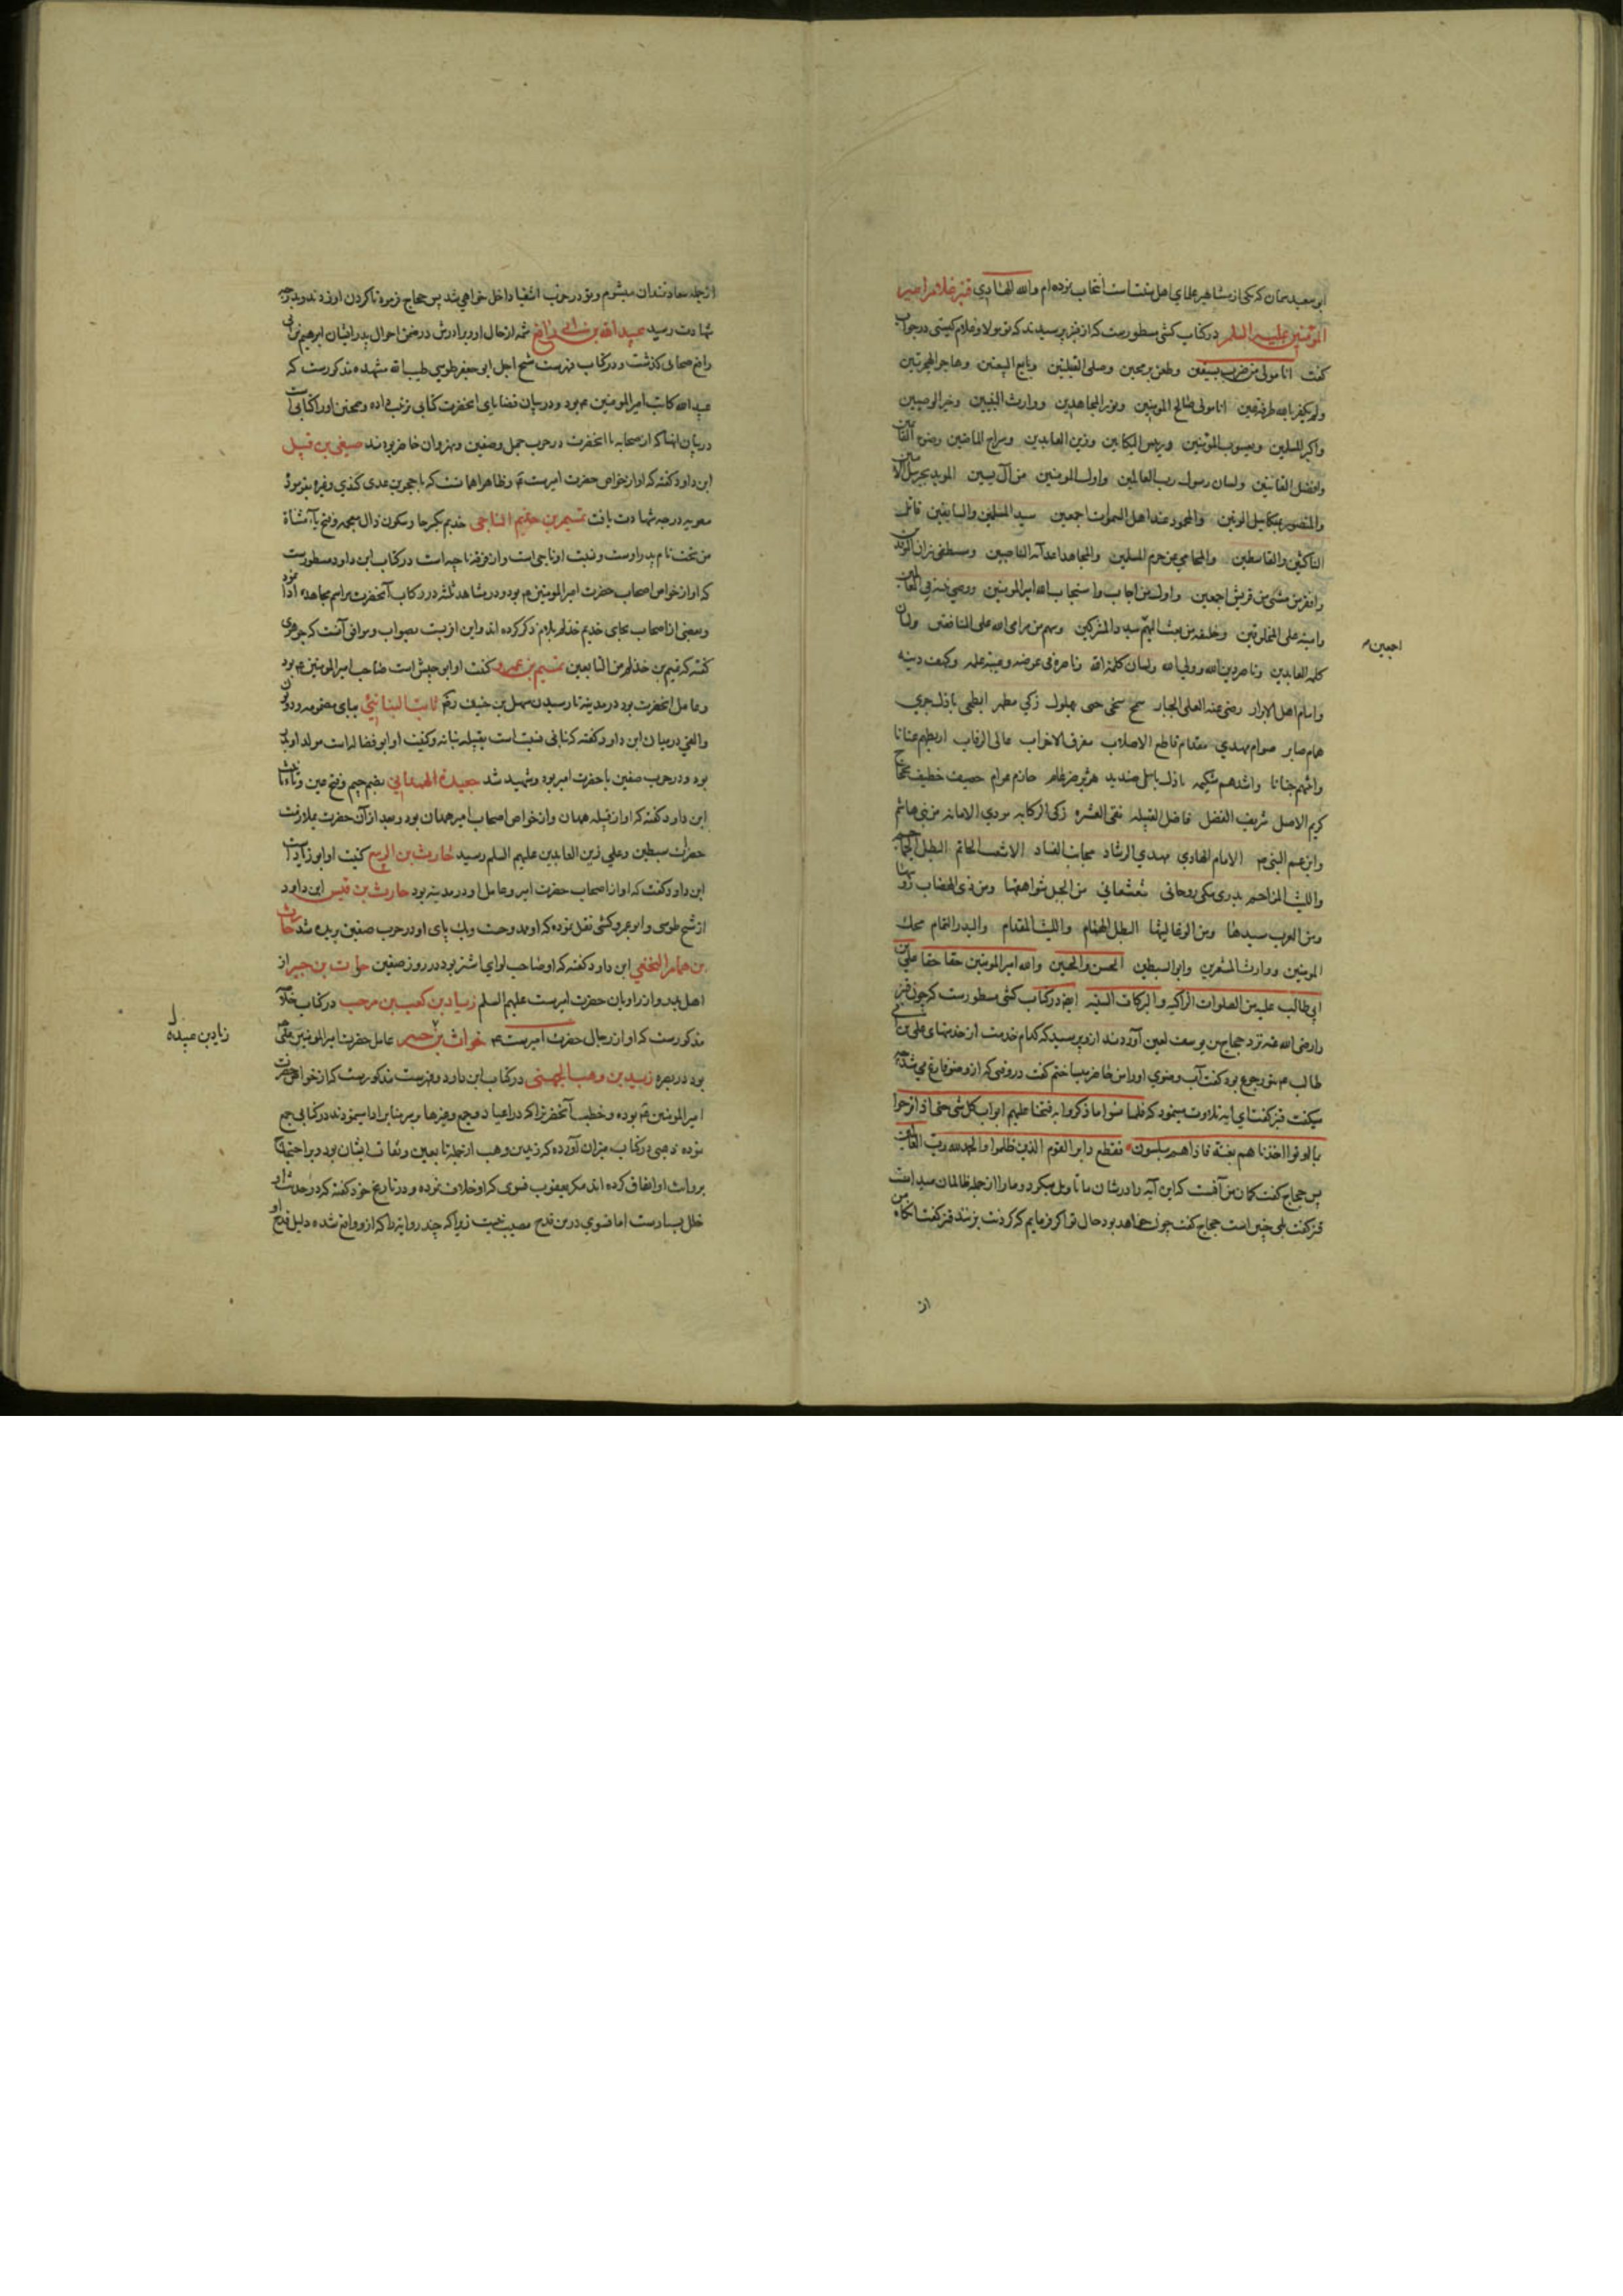 ابو سعید سمان که یکی از مشاهیر علمای اهل سنت است انتخاب نموده‌ام والله الهادی قنبر غلام امیر
المؤمنین علیه السلام در کتاب کشی مسطورست که از قنبر پرسیدند که تو مولا و غلام کیستی در جواب
گفت انا مولی من ضرب بسیفین وطعن برمحین وصلی القبلتین وبایع البیعتین وهاجر الهجرتین
ولم یکفر بالله طرفة عین انا مولی صالح المؤمنین ونور المجاهدین ووارث النبیین وخیر الوصیین
واکبر المسلمین ویعسوب المؤمنین ورئیس البکایین وزین العابدین وسراج الماضین وضوء القائمین
وافضل القانتین ولسان رسول رب العالمین واول المومنین من آل یسین الموید بجبریل الامین
والمنصور بمیکاییل المتین والمحمود عند اهل السموات اجمعین سید المسلمین والسابقین قاتل
الناکثین والقاسطین والمحامی عن حرم المسلمین والمجاهد اعدآئه الناصبین ومطفی نیران الموقدین
وافخر من مشی من قریش اجمعین واول من اجاب واستجاب لله امیر المومنین ووصی نبیه فی العالمین
وامینه علی المخلوقین وخلیفة من بعث الیهم سید والمشرکین وسهم من مرامی الله علی المنافقین ولسان
اجمعین
کلمة العابدین وناصر دین الله وولی الله ولسان کلمة الله وناصره فی ارضه وعیبة علمه وکهف دینه
وامام اهل الابرار رضی عنه العلی الجبار سمح سخی حیی بهلول زکی مطهر ابطحی باذل جری
همام صابر صوام مهدی مقدام قاطع الاصلاب مفرق الاحزاب عالی الرقاب اربطهم عنانا
واثبتهم جنانا واشدهم شکیمة باذل باسل صندید هزبر ضرغام حازم عزام حصیف خطیف محجاج
کریم الاصل شریف الفضل فاضل القبیله نقی العشیره زکی الرکابه مودی الامانه من بنی هاشم
وابن عم النبی الامام الهادی مهدی الرشاد مجانب الفساد الاشعث الحاتم البطل الجماجم
واللیث المزاحم بدری مکی روحانی شعشعانی من الجبل شواهقها ومن ذی الهضاب رؤسها
ومن العرب سیدها ومن الوغا لیثها البطل الهمام واللیث المقدام والبدر التمام محک
المومنین ووارث المشعرین وابو السبطین الحسن والحسین والله امیر المومنین حقا حقا علی بن
ابی طالب علیه من الصلوات الزاکیه والبرکات السنیه ایضا در کتاب کشی مسطورست که چون قنبر
را رضی الله عنه نزد حجاج بن یوسف لعین آوردند از وپرسید که کدام خدمت از خدمتهای علی بن ابی
طالب بتو رجوع بود گفت آب وضوی او را من حاضر میساختم گفت در وقتی که از وضو فارغ میشد چه
میگفت قنبر گفت ای ایه تلاوت مینمود که فلما نسوا ما ذکروا به فتحنا علیهم ابواب کل شی حتی اذا فرحوا
بما اوتوا اخذناهم بغتة فاذاهم مبلسون فقطع دابر القوم الذین ظلموا والحمد لله رب العالمین
پس حجاج گفت گمان من آنست که این آیه را در شان ما تاویل میکرد وما را از جمله ظالمان میدانست
قنبر گفت بلی چنین است حجاج گفت چون خواهد بود حال تو اگر فرمایم که گردنت بزنند قنبر گفت آنگاه من
از
از جمله سعادتمندان میشوم وتو در حزب اشقیا داخل خواهی شد پس حجاج فرمود تا گردن او زدند وبدرجه
شهادت رسید عبید الله بن ابی رافع شمه از حال او وبرادرش در ضمن احوال پدر ایشان ابرهیم ابی
رافع صحابی گذشت ودر کتاب فهرست شیخ اجل ابو جعفر طوسی طیب الله مشهده مذکورست که
عبید الله کاتب امیر المومنین بود ودر بیان قضایای انحضرت کتابی ترتیب داده وهمچنین او را کتابی است
در بیان انها که از صحابه با انحضرت در حرب جمل وصفین ونهروان حاضر بودند صیفی بن فسیل
ابن داود گفته که او از خواص حضرت امیرست وظاهرا همانست که با حجر بن عدی کندی وغیره بفرموده
معویه درجه شهادت یافت تمیم بن حذیم الناجی حذیم بکسر حا وسکون ذال معجمه وفتح یآء مثناة
من تحت نام پدر اوست ونسبت او ناجی است واز فرقه ناجیه است در کتاب ابن داود مسطورست
که او از خواص اصحاب حضرت امیر المومنین بود ودر مشاهد ثلثه در رکاب آنحضرت مراسم مجاهده ادا نمود
وبعضی از اصحاب بجای حذیم حذلم بلام ذکر کرده اند واین اقربست بصواب وموافق آنست که جوهری
گفته که تمیم بن حذلم من التابعین تمیم بن عمرو کنیت او ابو حبش است صاحب امیر المومنین بود
وعامل انحضرت بود در مدینه تا رسیدن سهل بن حنیف ثابت البنانی ببای مضمومه ودو نون
والفی در میان ابن داود گفته که نسبت است بقبیله بنانه وکنیت او ابو فضاله است مولد او بدر
بود ودر حرب صفین با حضرت امیر بود وشهید شد جعیدة الهمدانی بضم جیم وفتح عین
ابن داود گفته که او از قبیله همدان واز خواص اصحاب امیر همدان بود وبعد از آن حضرت بملازمت
حضرات سبطین وعلی زین العابدین علیهم السلم رسید حارث بن الربیع کنیت او ابو زیاد است
ابن داود گفت که او از اصحاب حضرت امیر وعامل او در مدینه بود حارث بن قیس ابن داود
از شیخ طوسی وابو عمرو کشی نقل نموده که او ممدوحست ویک پای او در حرب صفین بریده شد حارث
بن همام النخعی ابن داود گفته که او صاحب لوای اشتر بود در روز صفین خوات بن جبیر از
اهل بدر واز راویان حضرت امیرست علیهم السلم زیاد بن کعب بن مرحب در کتاب خلاصه
مذکورست که او از رجال حضرت امیرست عامل حضرت امیر المومنین علی
زیاد بن عبیده
بود در بصره زید بن وهب الجهنی در کتاب ابن داود وفهرست مذکورست که از خواص حضرت
امیر المومنین بوده وخطب آنحضرت را که در اعیاد وجمع وغیرها بر منابر ادا مینمودند در کتابی جمع
نموده ذهبی در کتاب میزان آورده که زید بن وهب از جمله تابعین وثقات ایشان بود وبر احتجاج
بروایت او اتفاق کرده اند مگر یعقوب فسوی که او خلاف نموده ودر تاریخ خود گفته که در حدیث او
خلل بسیارست اما فسوی درین قدح مصیب نیست زیرا که چند روایتها که از و واقع شده دلیل قدح او